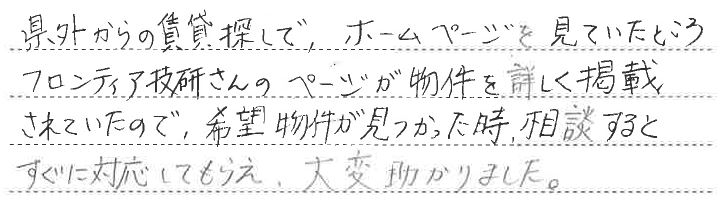 県外からの賃貸探しで、ホームページを見ていたところ
フロンティア技研さんのページが物件を詳しく掲載
されていたので、希望物件が見つかった時、相談すると
すぐに対応してもらえ、大変助かりました。